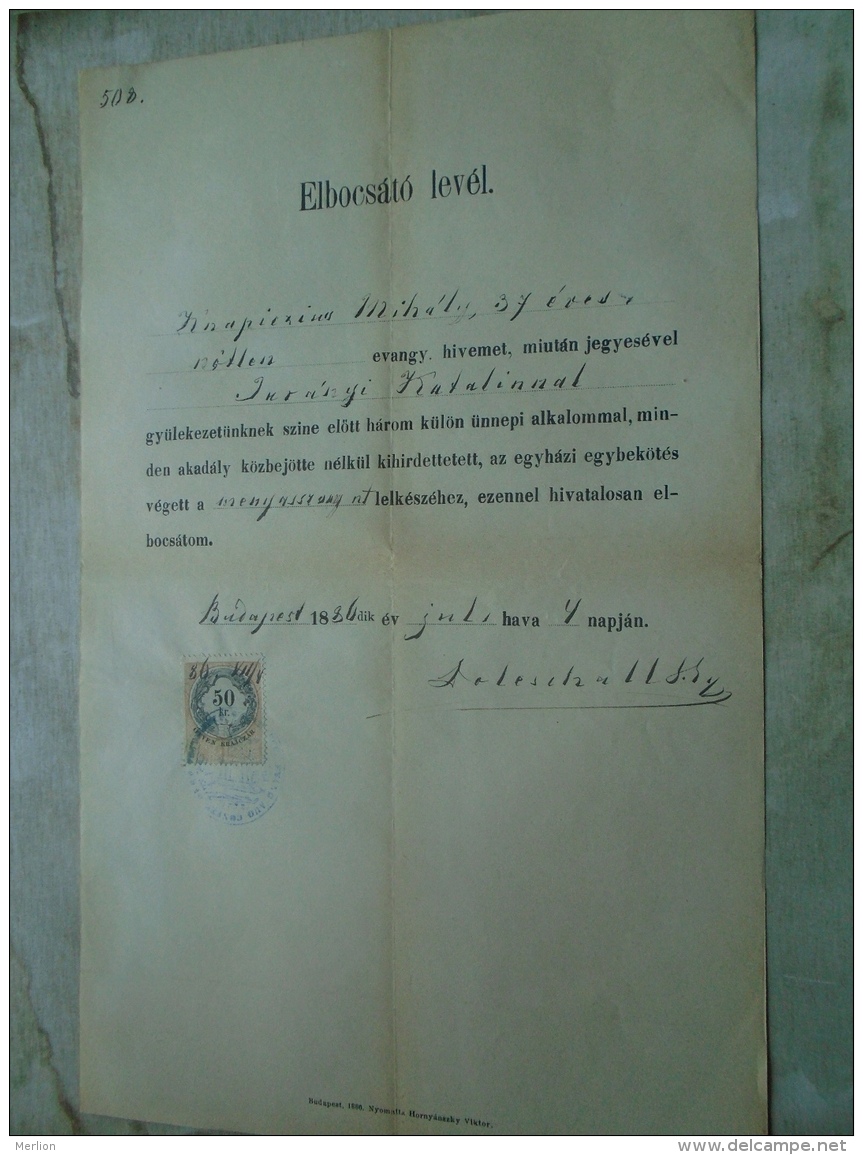 508.
Elbocsátó levél.
Knapiczius Mihály, 37 éves
nőtlen evangy. hivemet, miután jegyesével
Katalinnal
gyülekezetünknek szine előtt három külön ünnepi alkalommal, min-
den akadály közbejötte nélkül kihirdettetett, az egyházi egybekötés
végett a menyasszony lelkészéhez, ezennel hivatalosan el-
bocsátom.
Budapest 1886dik év juli hava 4 napján.
50
kr.
ÖTVEN KRAJCZÁR
Budapest, 1886. Nyomatta Hornyánszky Viktor.
Merlion
www.delcampe.net